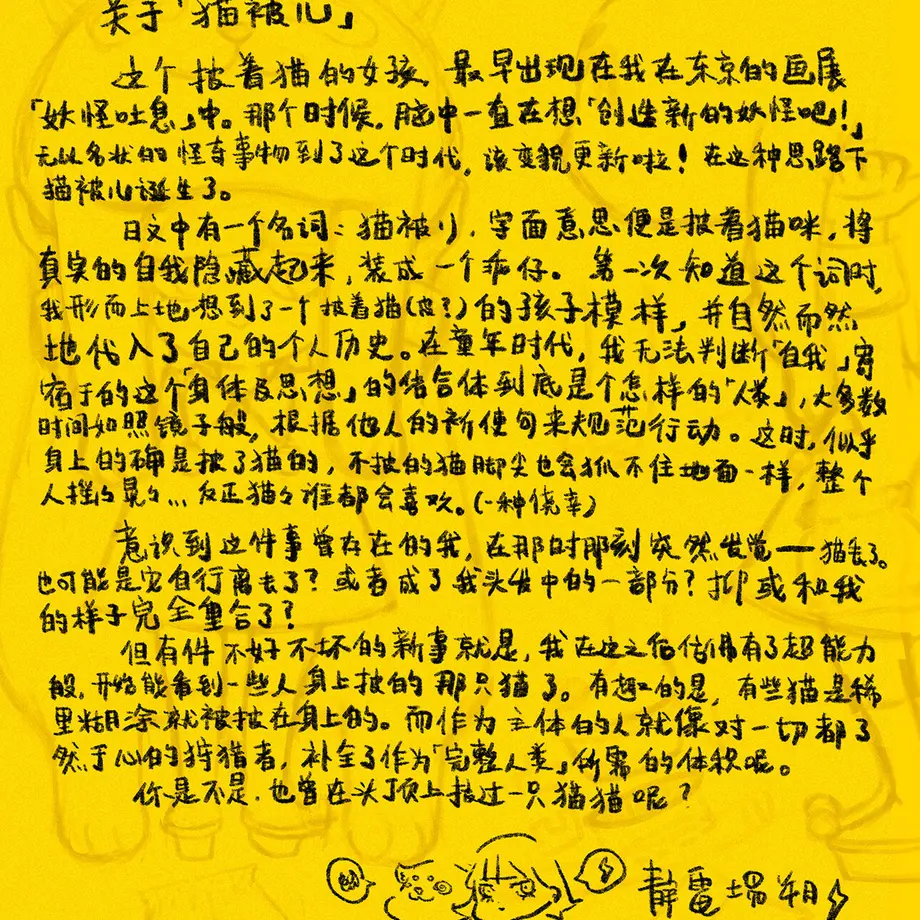 关于「猫被り」
这个披着猫的女孩 最早出现在我在东京的画展
「妖怪吐息」中。那个时候，脑中一直在想「创造新的妖怪吧！」
无以名状的怪奇事物到了这个时代，该变貌更新啦！在这种思路下
猫被り诞生了。
日文中有一个名词：猫被り，字面意思便是披着猫咪，将
真实的自我隐藏起来，装成一个乖仔。第一次知道这个词时，
我形而上地想到了一个披着猫(皮？)的孩子模样，并自然而然
地代入了自己的个人历史。在童年时代，我无法判断「自我」寄
宿于的这个「身体及思想」的结合体到底是个怎样的「人类」，大多数
时间如照镜子般，根据他人的祈使句来规范行动。这时，似乎
身上的确是披了猫的，不披的猫脚尖也会抓不住地面一样，整个
人摇々晃々… 反正猫々谁都会喜欢。(一种侥幸)
意识到这件事曾存在的我，在那时那刻突然发觉——猫丢了。
也可能是它自行离去了？或者成了我头发中的一部分？抑或和我
的样子完全重合了？
但有件不好不坏的新事就是，我在这之后仿佛有了超能力
般，开始能看到一些人身上披的那只猫了。有趣的是，有些猫是稀
里糊涂就被披在身上的。而作为主体的人就像对一切都了
然于心的狩猎者，补全了作为「完整人类」所需的体积呢。
你是不是，也曾在头顶上披过一只猫猫呢？
静電場朔